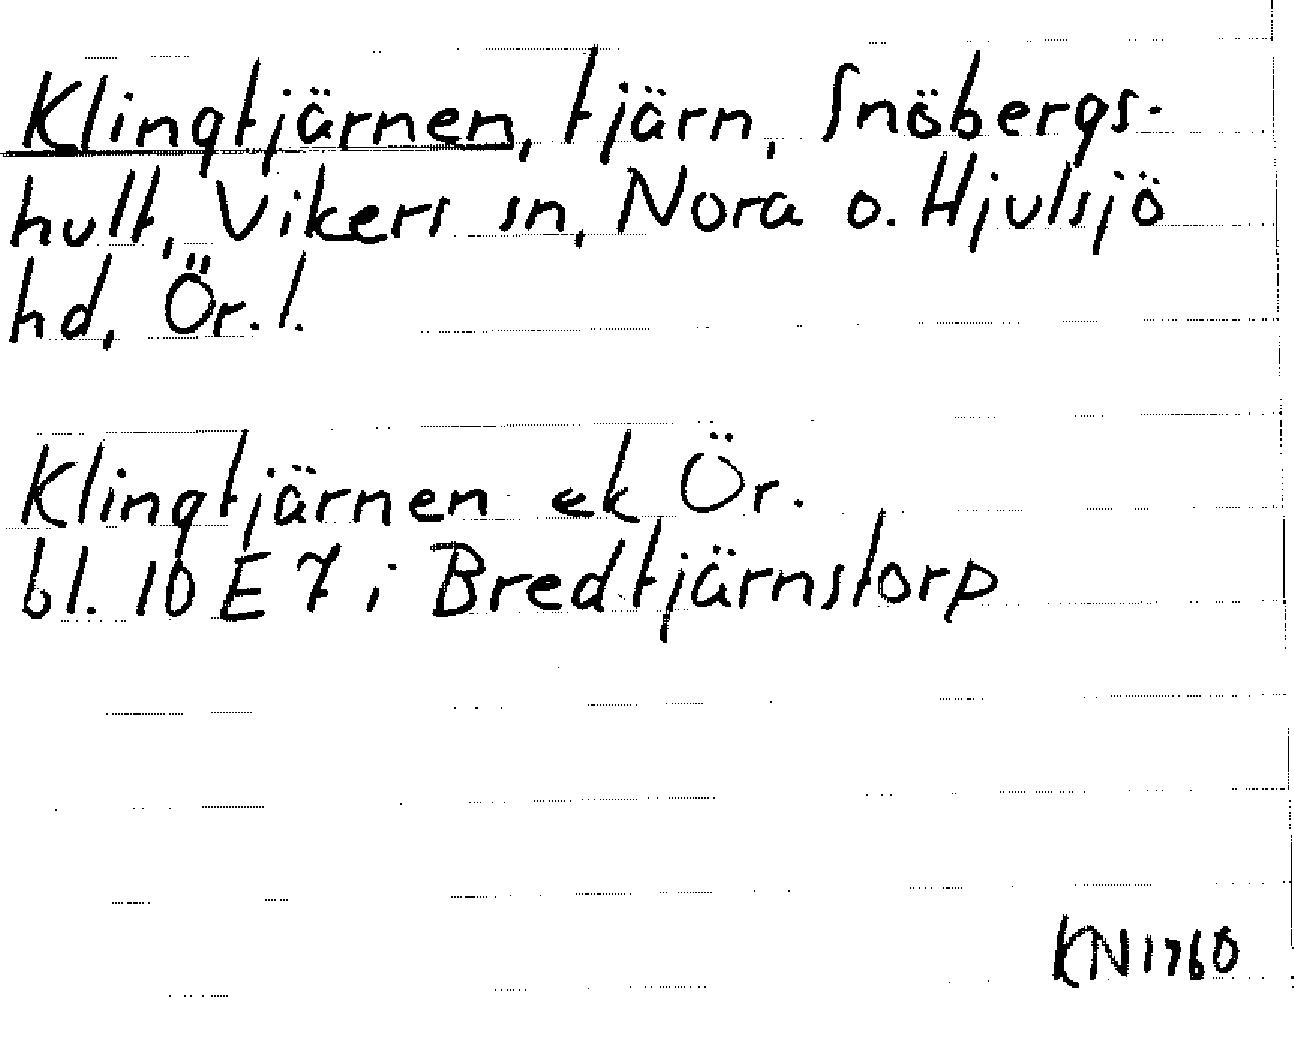 Klingtjärnen, tjärn, Snöbergs-
hult, Vikers sn, Nora o. Hjulsjö
hd, Ör. l.
Klingtjärnen ek Ör.
bl. 10 E 7 i Bredtjärnstorp
KN 1960